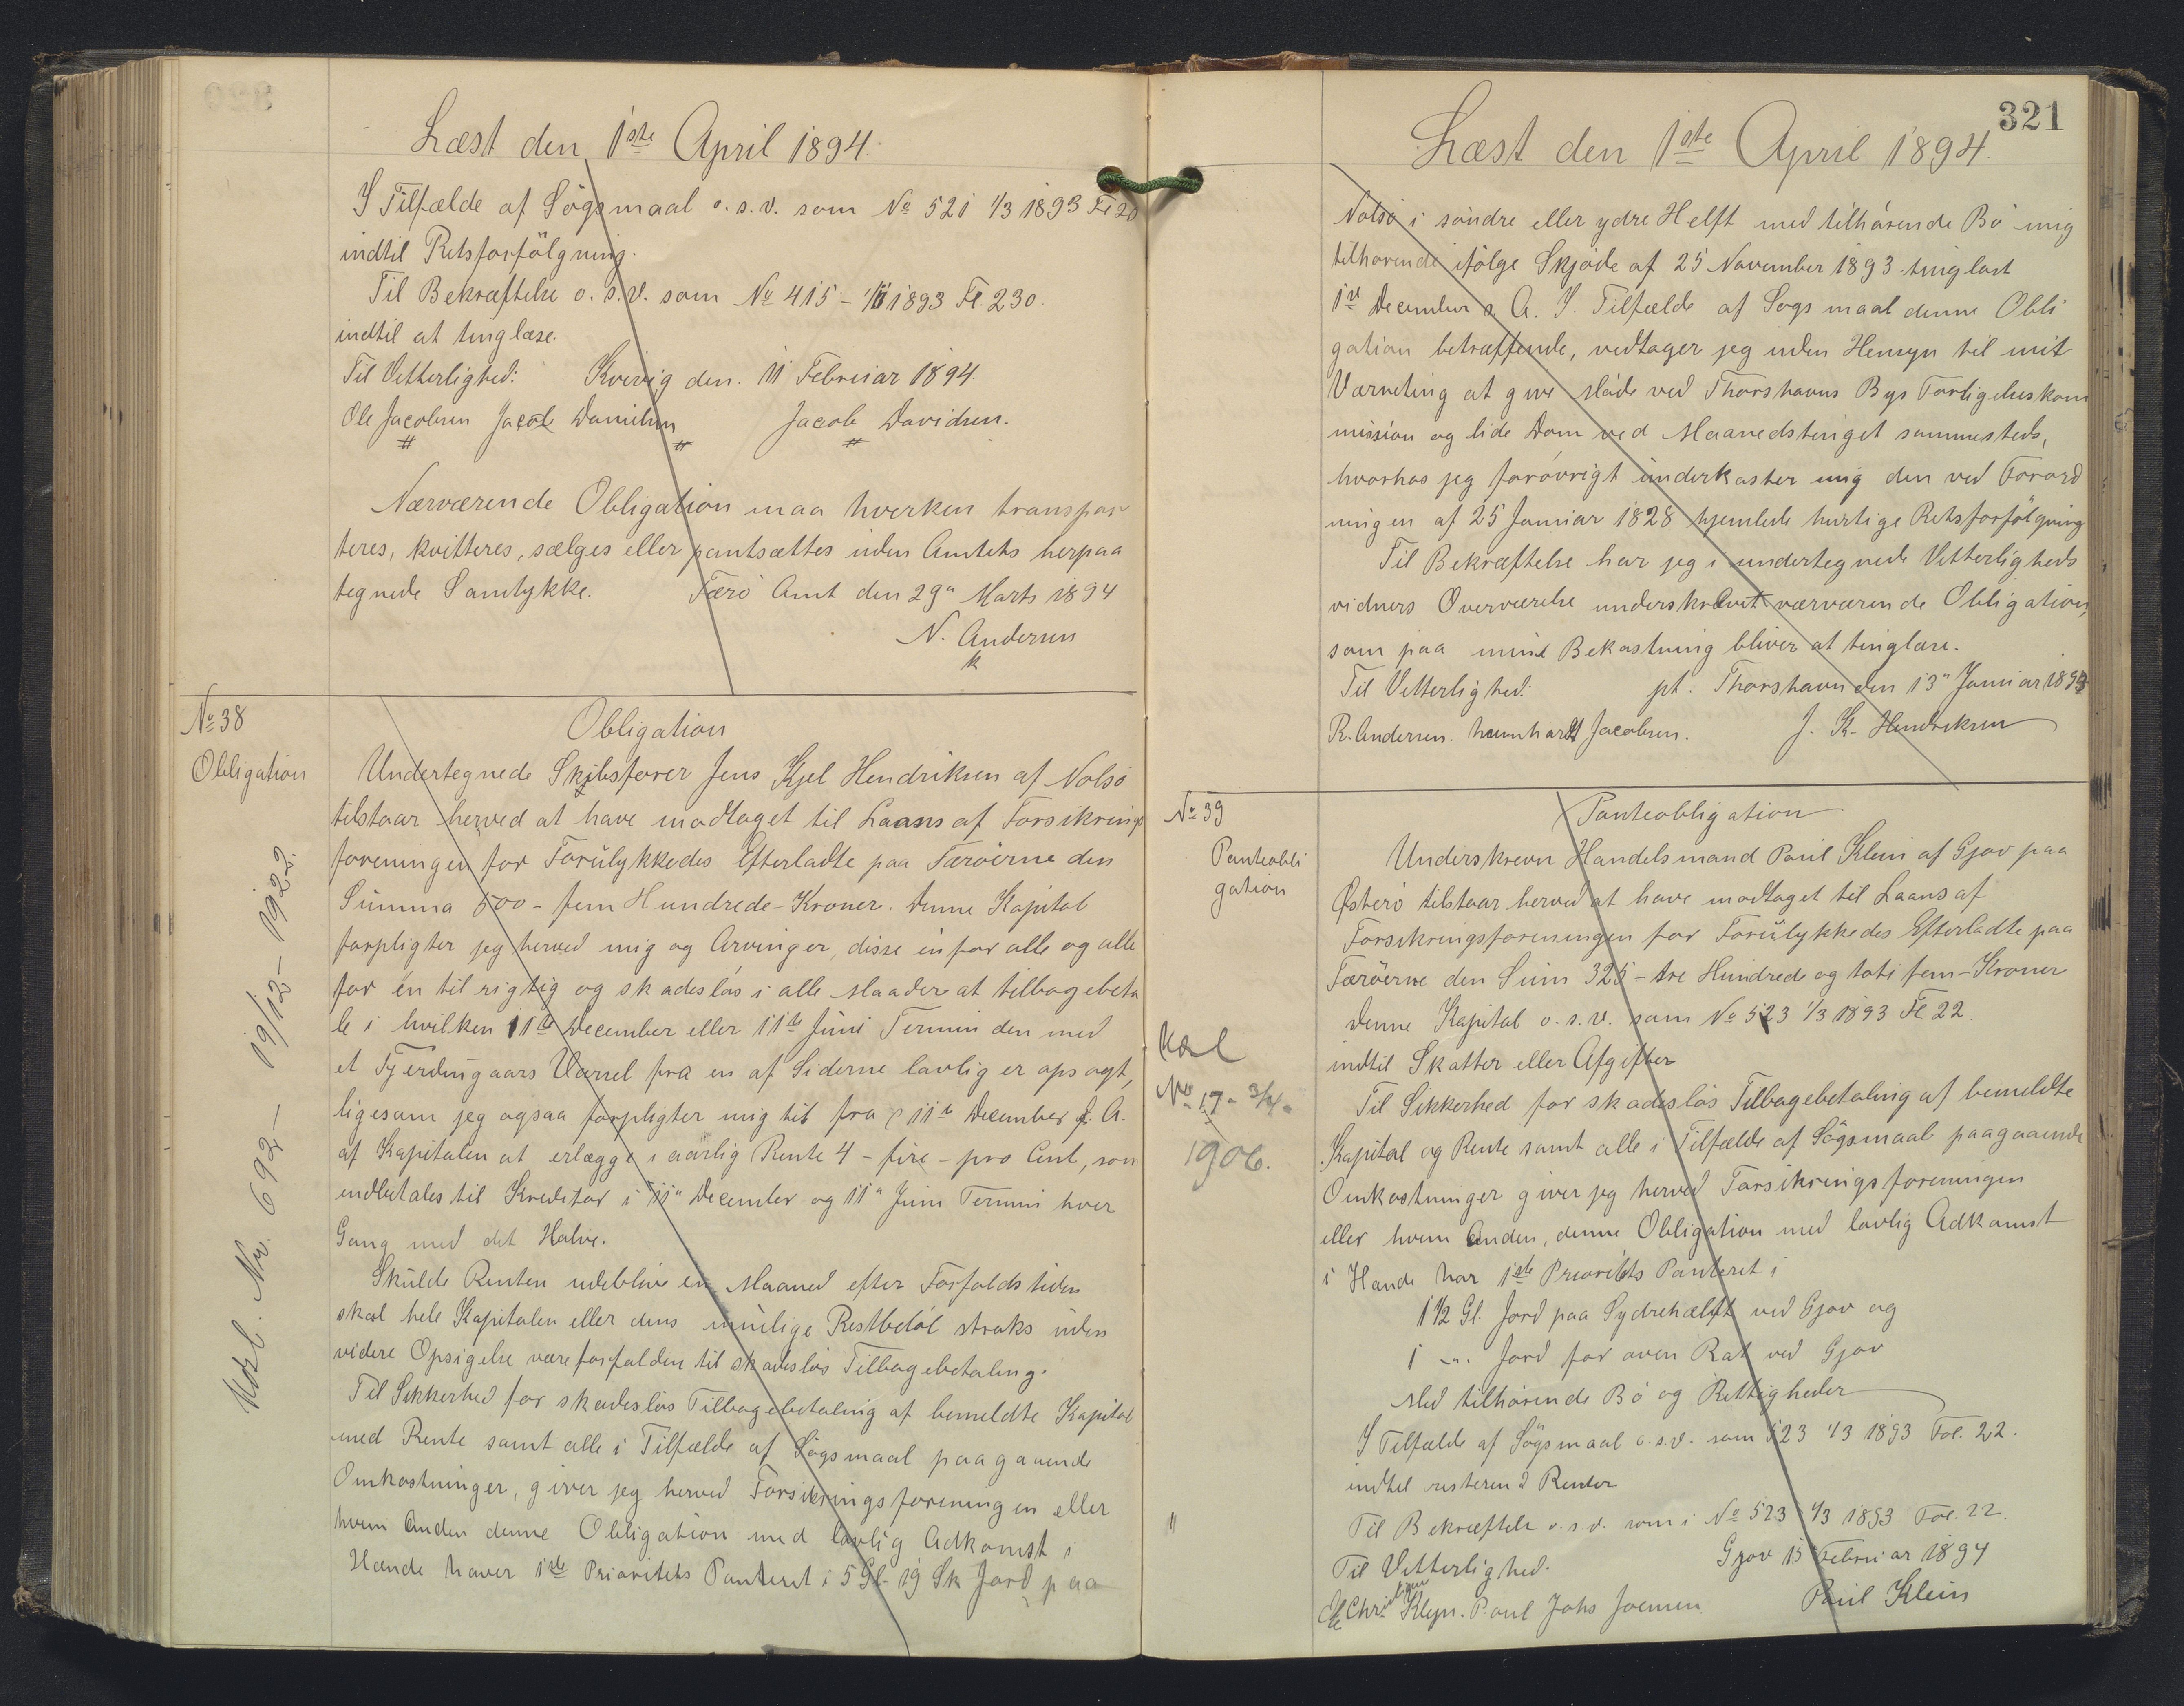 Læst den 1ste April 1894.
I Tilfælde af Sögsmaal o.s.v. som No 521 1/3 1893 Fl 20
indtil Retsforfölgning.
Til Bekræftelse o.s.v. som No 415 - 1893 Fl 230.
indtil at tinglæse.
Til Vitterlighed: Kvivig den 11 Februar 1894.
Ole Jacobsen Jacob Danielsen Jacob Davidsen.
Nærværende Obligation maa hverken transpor
teres, kvitteres, sælges eller pantsættes uden Amtets herpaa
tegnede Samtykke. Færö Amt den 29" Marts 1894
N. Andersen
No 38
Obligation
Obligation
Undertegnede Skibsförer Jens Kjel Hendriksen af Nolsö
tilstaar herved at have modtaget til Laans af Forsikrings
foreningen for Forulykkedes Efterladte paa Færöerne den
Summa 500 - fem Hundrede - Kroner. Denne Kapital
forpligter jeg herved mig og Arvinger, disse én for alle og alle
for én til rigtig og skadeslös i alle Maader at tilbagebeta
le i hvilken 11te December eller 11te Juni Termin den med
et Fjerdingaars Varsel fra en af Siderne lovlig er opsagt,
ligesom jeg ogsaa forpligter mig til fra 11te December f. A.
af Kapitalen at erlægge i aarlig Rente 4 - fire - pro Cent, som
indbetales til Kreditor i 11" December og 11" Juni Termin hver
Gang med det Halve.
Skulde Renten udeblive en Maaned efter Forfaldstiden
skal hele Kapitalen eller dens mulige Restbelöb straks uden
videre Opsigelse være forfalden til skadeslös Tilbagebetaling.
Til Sikkerhed for skadeslös Tilbagebetaling af bemeldte Kapital
med Rente samt alle i Tilfælde af Sögsmaal paagaaende
Omkostninger, giver jeg herved Forsikringsforeningen eller
hvem Anden denne Obligation med lovlig Adkomst i
Hænde haver 1ste Prioritets Panteret i 5 Gl. 19 Sk Jord paa
Udsl. Nr. 692 - 19/12 - 1922.
321
Læst den 1ste April 1894.
Nolsö i söndre eller ydre Helft med tilhörende Bö mig
tilhörende ifölge Skjöde af 25 November 1893 tinglæst
1st December s. A. I Tilfælde af Sögsmaal denne Obli
gation betræffende, vedtager jeg uden Hensyn til mit
Værneting at give Möde ved Thorshavns Bys Forligelseskom
mission og lide Dom ved Maanedstinget sammesteds,
hvorhos jeg forövrigt underkaster mig den ved Forord
ningen af 25 Januar 1828 hjemlede hurtige Retsforfölgning
Til Bekræftelse har jeg i undertegnede Vitterligheds
vidners Overværelse underskrevet nærværende Obligation,
som paa mine Bekostning bliver at tinglæse.
Til Vitterlighed: pt. Thorshavn den 13" Januar 1894
R. Andersen. Jacobsen. J. K. Hendriksen
No 39
Panteobli
gation
Panteobligation
Underskreven Handelsmand Poul Klein af Gjov paa
Österö tilstaar herved at have modtaget til Laans af
Forsikringsforeningen for Forulykkedes Efterladte paa
Færöerne den Sum 325 - tre Hundrede og toti fem - Kroner
Denne Kapital o.s.v. som No 523 1/3 1893 Fl 22.
indtil Skatter eller Afgifter
Til Sikkerhed for skadeslös Tilbagebetaling af bemeldte
Kapital og Rente samt alle i Tilfælde af Sögsmaal paagaaende
Omkostninger giver jeg herved Forsikringsforeningen
eller hvem Anden, denne Obligation med lovlig Adkomst
i Hænde har 1ste Prioritets Panteret i
1 1/2 Gl. Jord paa Sydrehælft ved Gjov og
1 -"- Jord for oven Rat ved Gjov
Med tilhörende Bö og Rettigheder
I Tilfælde af Sögsmaal o.s.v. som 523 1/3 1893 Fol. 22.
indtil resterend Renter
Til Bekræftelse o.s.v. som i No 523 1/3 1893 Fol. 22.
Til Vitterlighed. Gjov 15 Februar 1894
Chr. Klyn. Poul Johs Joensen Poul Klein
Udsl
No 17 - 3/4 -
1906.